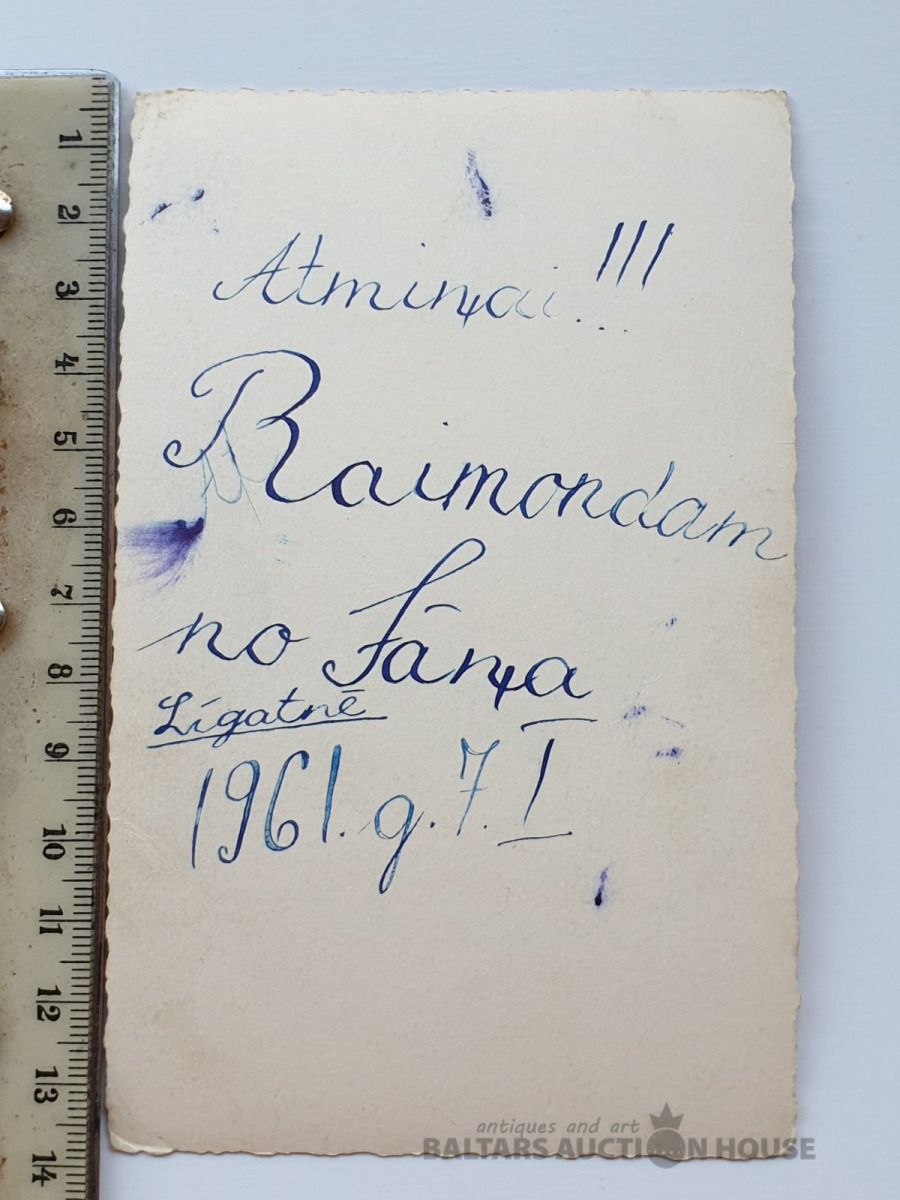 Atmiņai!!!
Raimondam
no Jāņa
Līgatnē
1961. g. 7. I
1
2
3
4
5
6
7
8
9
10
11
12
13
14
antiques and art
BALTARS AUCTION HOUSE